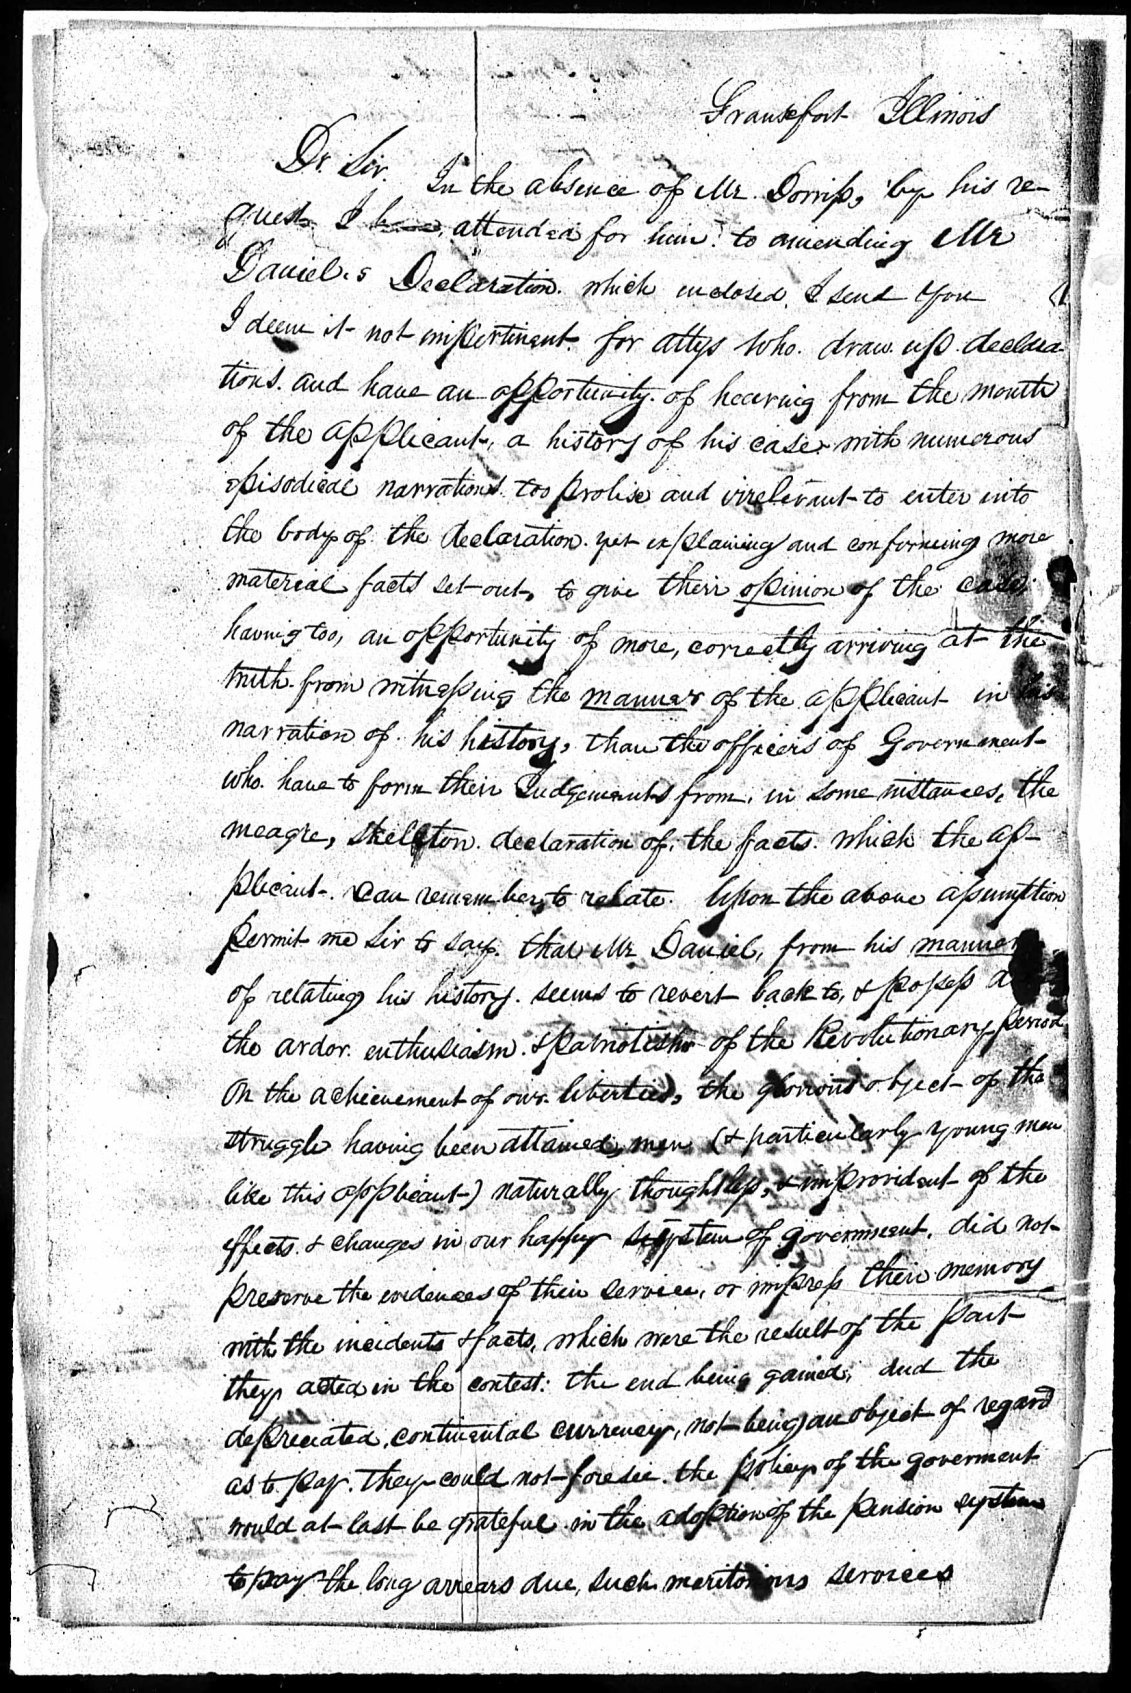 Frankfort Illinois
Dr. Sir. In the absence of Mr. Dorriss, by his re-
quest I attended for him to amending Mr
Daniel.s Declaration. which enclosed, I send you
I deem it not impertinent. for attys who. draw up declara-
tions. and have an opportunity. of hearing from the mouth
of the applicant, a history of his case. with numerous
episodical narrations. too prolix and irrelevant to enter into
the body of the declaration. yet explaining and confirming more
material facts set out, to give their opinion of the case.
having too, an opportunity of more, correctly arriving at the
truth. from witnessing the manner of the applicant in his
narration of his history, than the officers of Government
who. have to form their Judgements from, in some instances, the
meagre, skeleton. declaration of, the facts. which the ap-
plicant. can remember, to relate. Upon the above assumption
permit me Sir to say. that Mr. Daniel, from his manner
of relating his history. seems to revert back to, & possess
the ardor. enthusiasm. & patriotism of the Revolutionary period.
On the achievement of our liberties, the glorious object of the
struggle having been attained, men (& particularly young men
like this applicant) naturally thoughtless, & improvident of the
effects & changes in our happy system of government. did not
preserve the evidences of their service, or impress their memory
with the incidents & facts, which were the result of the part
they acted in the contest: the end being gained, and the
depreciated, continental currency, not being an object of regard
as to pay. they could not foresee the policy of the goverment
would at last be grateful in the adoption of the pension system
to pay the long arrears due, such meritorious services